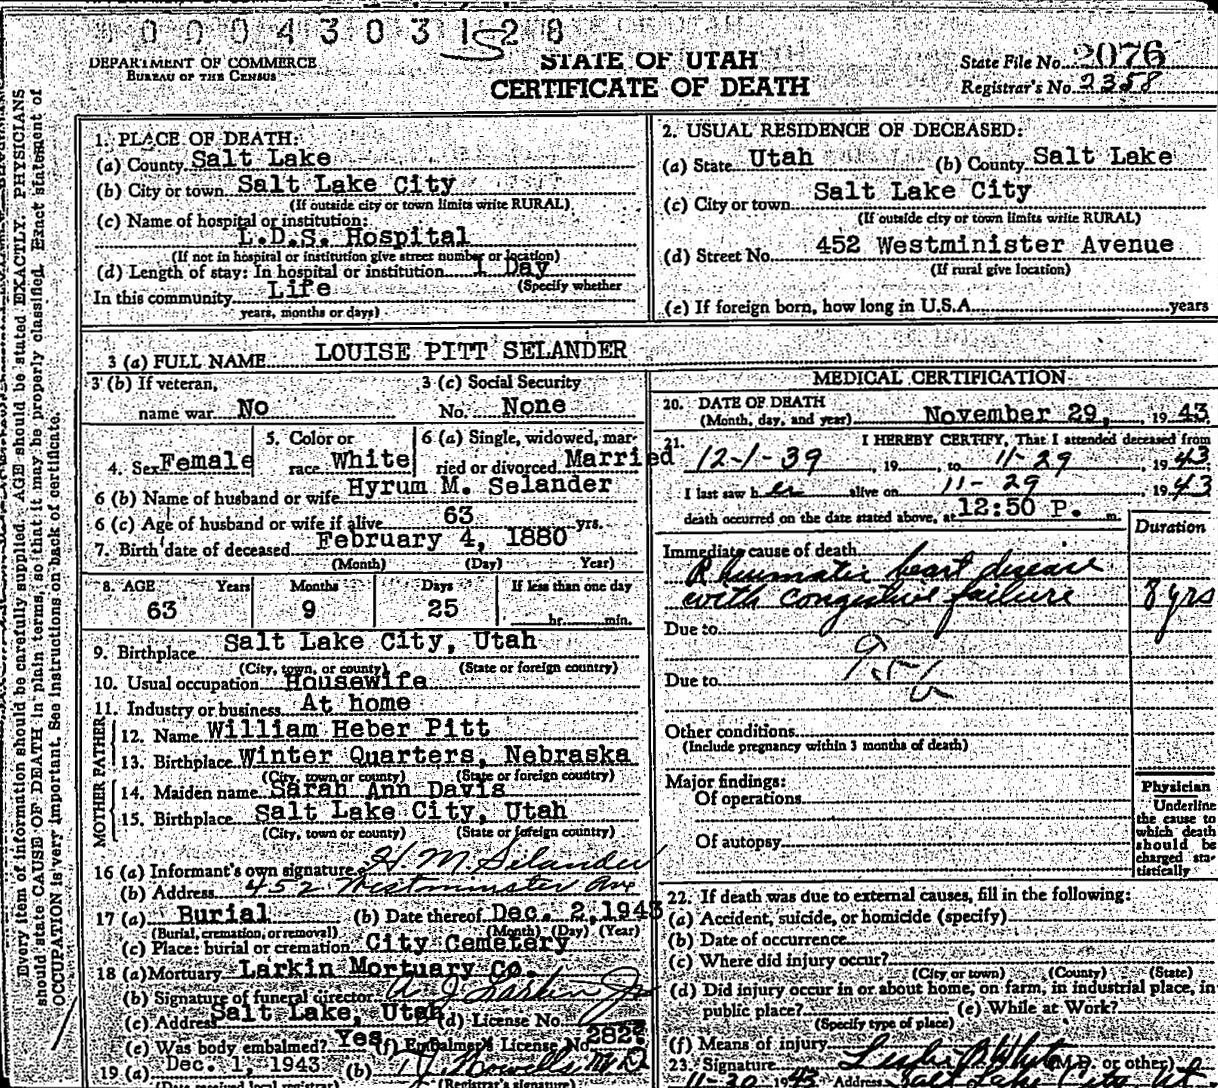 000430 31528
DEPARTMENT OF COMMERCE
BUREAU OF THE CENSUS
STATE OF UTAH
CERTIFICATE OF DEATH
State File No. 2076
Registrar's No. 2358
Every item of information should be carefully supplied. AGE should be stated EXACTLY. PHYSICIANS
should state CAUSE OF DEATH in plain terms, so that it may be properly classified. Exact statement of
OCCUPATION is very important. See instructions on back of certificate.
1. PLACE OF DEATH:
(a) County Salt Lake
(b) City or town Salt Lake City
(If outside city or town limits write RURAL)
(c) Name of hospital or institution:
L.D.S. Hospital
(If not in hospital or institution give street number or location)
(d) Length of stay: In hospital or institution 1 Day
(Specify whether
In this community Life
years, months or days)
2. USUAL RESIDENCE OF DECEASED:
(a) State Utah (b) County Salt Lake
(c) City or town Salt Lake City
(If outside city or town limits write RURAL)
(d) Street No. 452 Westminister Avenue
(If rural give location)
(e) If foreign born, how long in U.S.A. years
3 (a) FULL NAME LOUISE PITT SELANDER
3 (b) If veteran, name war No
3 (c) Social Security No. None
4. Sex Female
5. Color or race White
6 (a) Single, widowed, married or divorced Married
6 (b) Name of husband or wife Hyrum M. Selander
6 (c) Age of husband or wife if alive 63 yrs.
7. Birth date of deceased February 4, 1880
(Month) (Day) Year)
8. AGE Years Months Days If less than one day
63 9 25 hr. min.
9. Birthplace Salt Lake City, Utah
(City, town, or county) (State or foreign country)
10. Usual occupation Housewife
11. Industry or business At home
FATHER
12. Name William Heber Pitt
13. Birthplace Winter Quarters, Nebraska
(City, town or county) (State or foreign country)
MOTHER
14. Maiden name Sarah Ann Davis
15. Birthplace Salt Lake City, Utah
(City, town or county) (State or foreign country)
16 (a) Informant's own signature H M Selander
(b) Address 452 Westminster Ave
17 (a) Burial (b) Date thereof Dec. 2, 1943
(Burial, cremation, or removal) (Month) (Day) (Year)
(c) Place: burial or cremation City Cemetery
18 (a) Mortuary Larkin Mortuary Co.
(b) Signature of funeral director A. J. Larkin Jr
(c) Address Salt Lake, Utah (d) License No.
(e) Was body embalmed? Yes (f) Embalmer's License No. 282
19 (a) Dec. 1, 1943 (b) M.D.
(Date received local registrar) (Registrar's signature)
MEDICAL CERTIFICATION
20. DATE OF DEATH
(Month, day, and year) November 29, 1943
21. I HEREBY CERTIFY, That I attended deceased from
12-1-39, 19 , to 11-29, 1943
I last saw her alive on 11-29, 1943
death occurred on the date stated above, at 12:50 P. m.
Duration
Immediate cause of death
Rheumatic heart disease
with congestive failure 8 yrs
Due to
Due to
Other conditions
(Include pregnancy within 3 months of death)
Major findings:
Of operations
Of autopsy
Physician
Underline
the cause to
which death
should be
charged sta-
tistically
22. If death was due to external causes, fill in the following:
(a) Accident, suicide, or homicide (specify)
(b) Date of occurrence
(c) Where did injury occur?
(City or town) (County) (State)
(d) Did injury occur in or about home, on farm, in industrial place, in
public place? (e) While at Work?
(Specify type of place)
(f) Means of injury
23. Signature (M.D. or other)
11-30 1943 Address Salt Lake